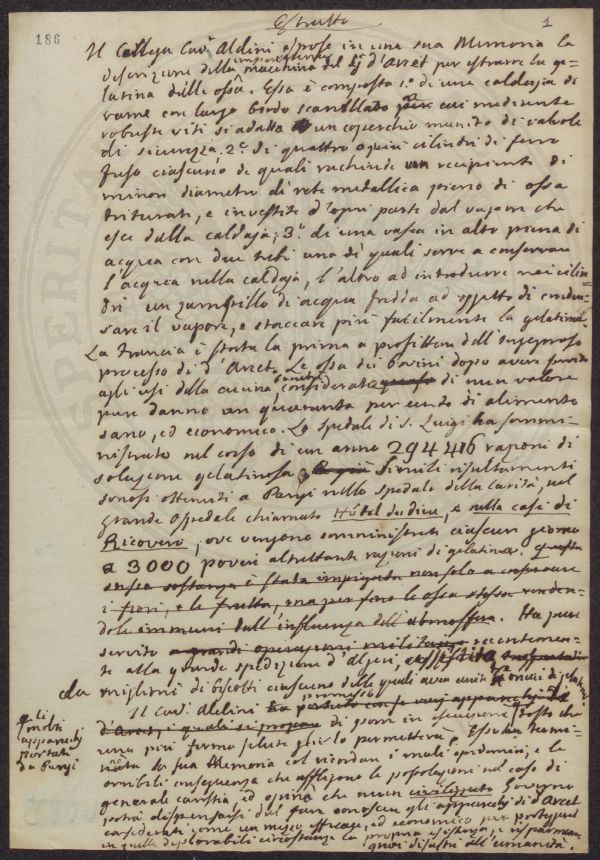 186
Estratto
1
Il Collega Cav. Aldini espose in una sua Memoria la
descrizione della macchina del Sig. d'Arcet per estrarre la ge=
latina dalle ossa. Essa è composta 1.º di una caldaja di
rame con largo bordo scanellato cui mediante
robuste viti si adatta un coperchio munito di valvole
di sicurezza. 2.º di quattro cilindri di ferro
fuso ciascuno de' quali racchiude un recipiente di
minor diametro di rete metallica pieno di ossa
triturate, e investite d'ogni parte dal vapore che
esce dalla caldaja; 3.º di una vasca in alto piena di
acqua con due tubi uno de' quali serve a conservare
l'acqua nella caldaja, l'altro ad introdurre nei cilin=
dri un zampillo di acqua fredda ad oggetto di conden=
sare il vapore, e staccare più facilmente la gelatina.
La Francia è stata la prima a profittare dell'ingegnoso
processo di d'Arcet. Le ossa dei bovini dopo avere servito
agli usi della cucina considerate di niun valore
pure danno un quaranta per cento di alimento
sano, ed economico. Lo Spedale di S. Luigi ha sommi=
nistrato nel corso di un anno 294446 razioni di
soluzione gelatinosa, simili risultamenti
sonosi ottenuti a Parigi nello Spedale della Carità, nel
grande Ospedale chiamato Hôtel de dieu, e nella casa di
Ricovero, ove vengono somministrate ciascun giorno
a 3000 poveri altrettante razioni di gelatina. questa
stessa sostanza è stata impiegata non solo a conservare
i fiori, e le frutta, ma per fino le ossa stesse renden=
dole immuni dall'influenza dell'atmosfera. Ha pure
servito a grandi operazioni militari recentemen=
te alla grande spedizione d'Algeri,
da migliori di biscotti ciascuno delle quali avea once di gelat.
Il Cav. Aldini ha portato con se varj apparecchi
d'Arcet, i quali si propone di porre in esecuzione tosto che
una più ferma salute glielo permetterà. Esso ha termi=
nato la sua Memoria col ricordare i mali epidemici, e le
orribili conseguenze che affliggono le popolazioni nel caso di
generale carestia, ed opinò che niun civilizzato Governo
potrà dispensarsi dal fare conoscere gli apparecchi di d'Arcet
considerati come un mezzo efficace, ed economico per proteggere
in quelle deplorabili circostanze la propria esistenza, e risparmiare
gravi disastri all'umanità.
gli
molti
apparecchj
portati
da Parigi